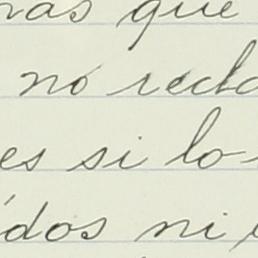 nas que
no recla
es si lo
ídos ni